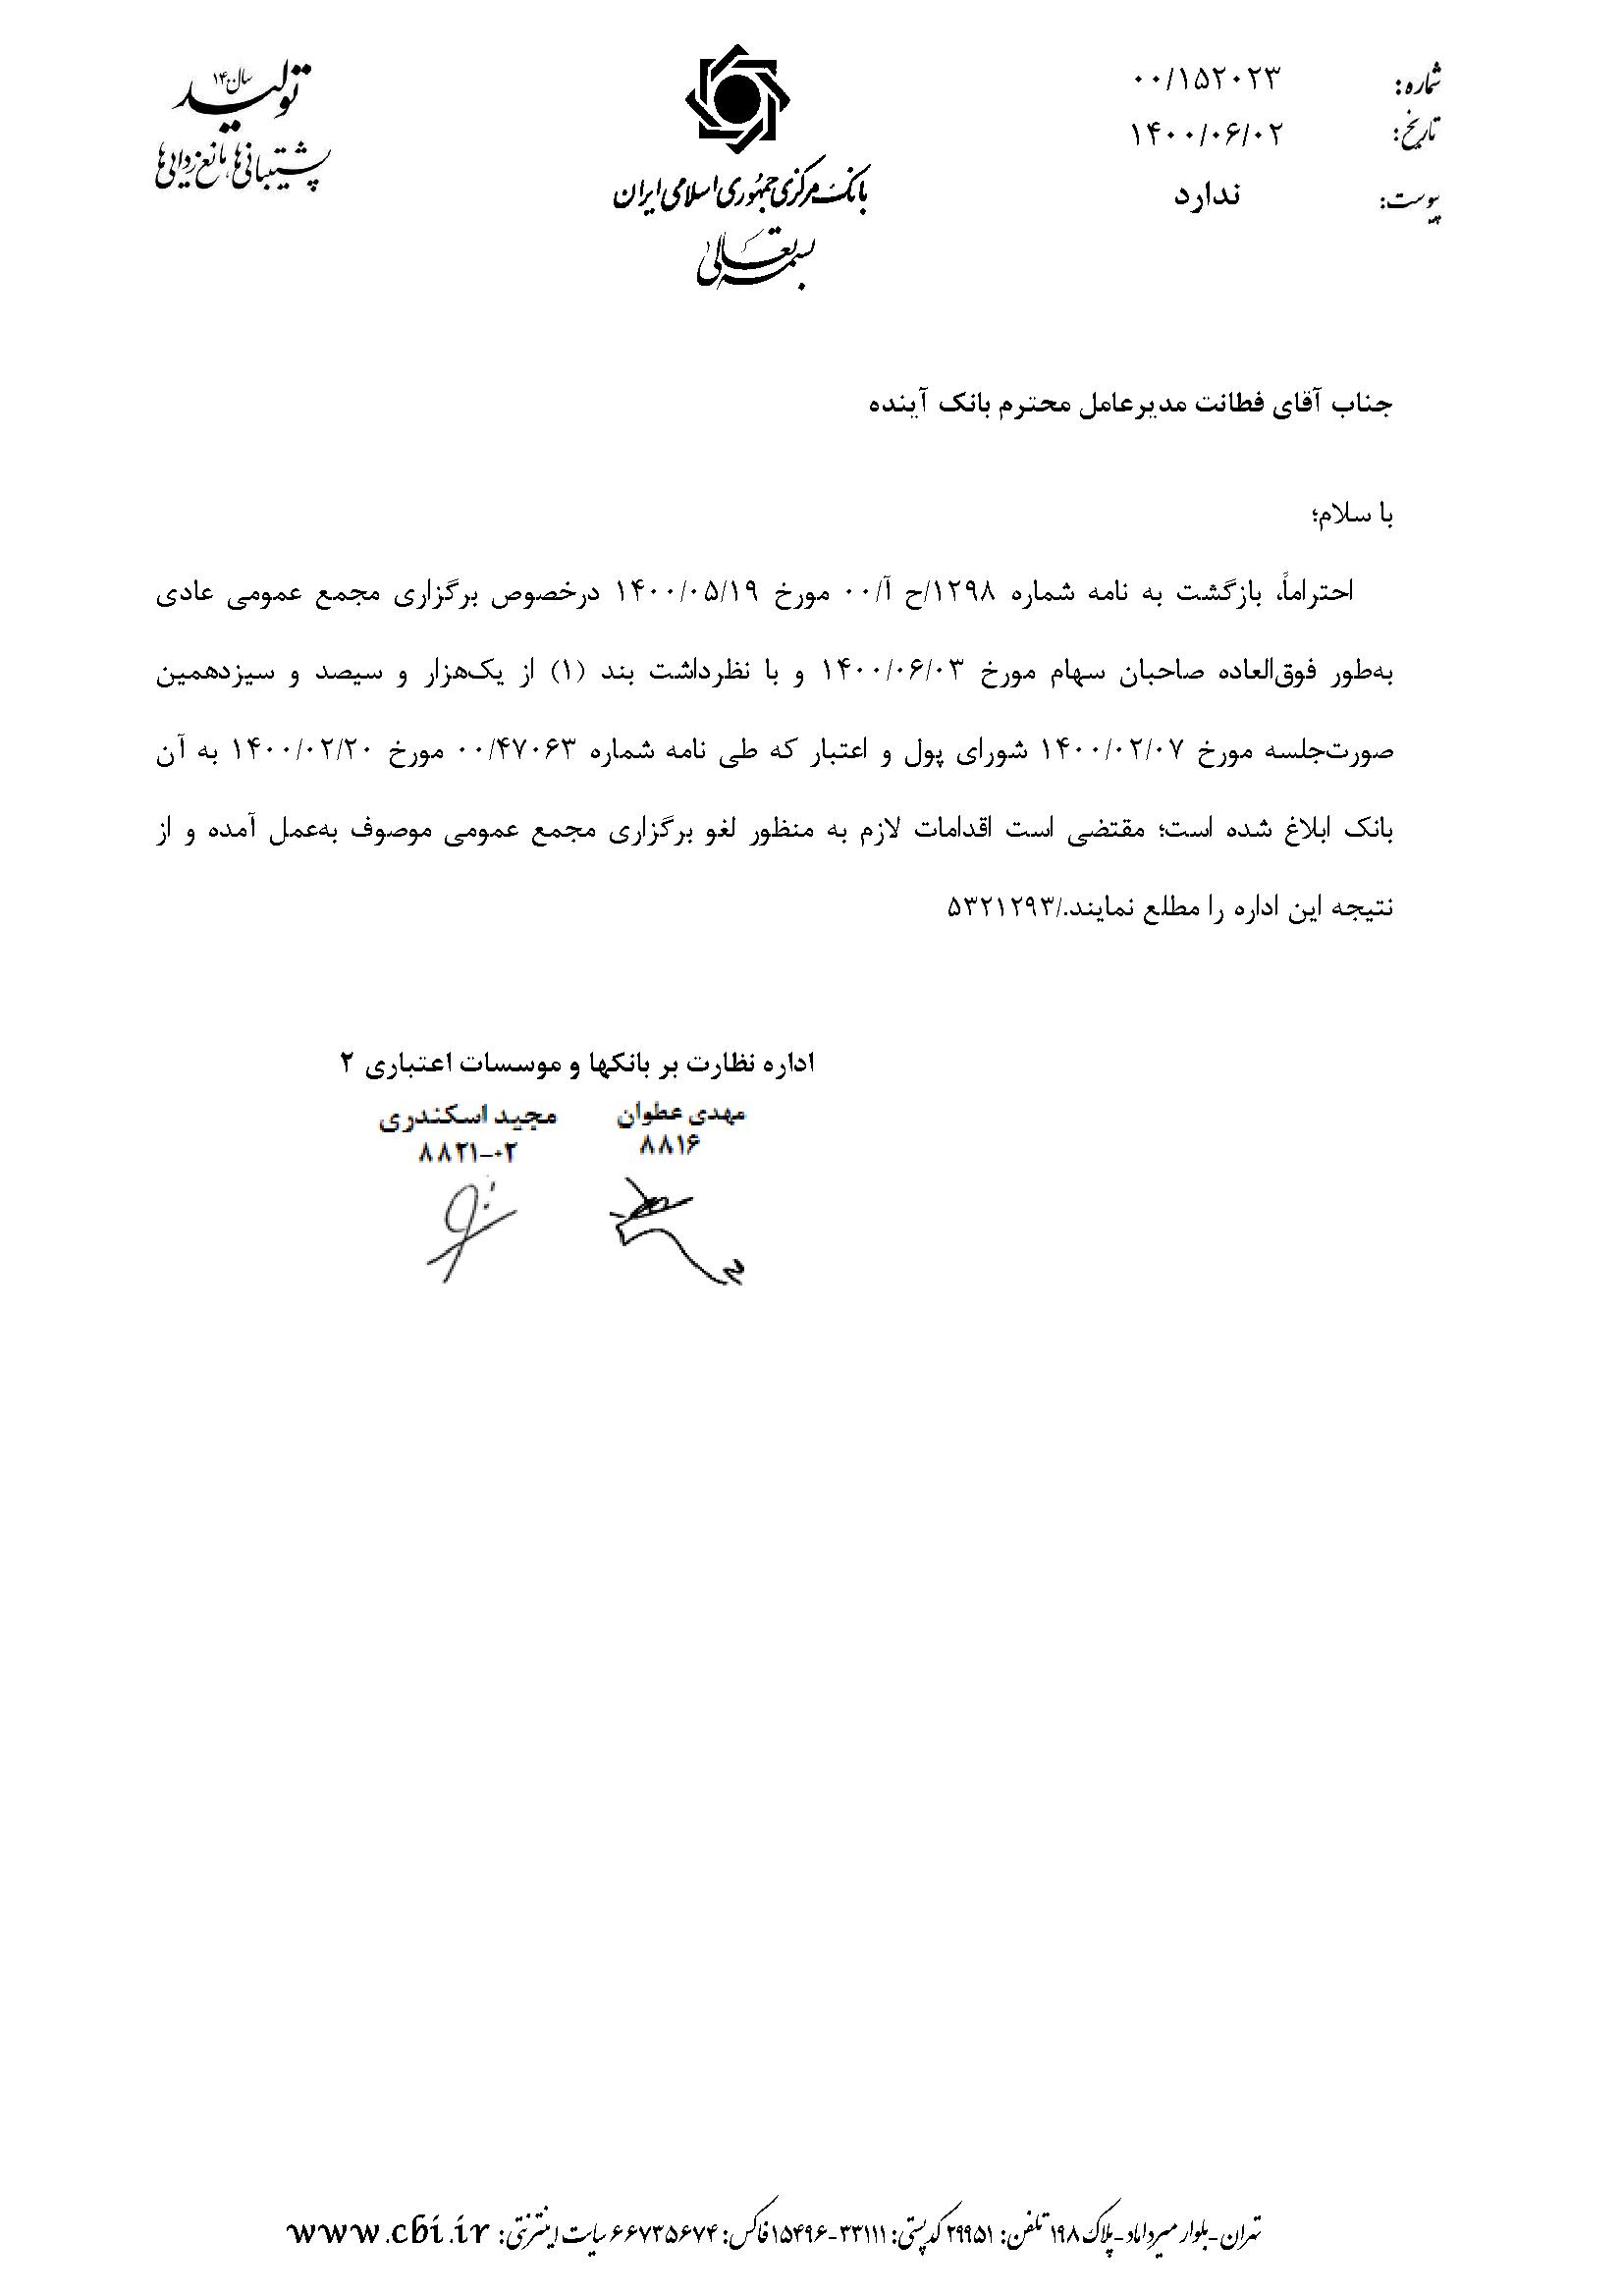 شماره: ۰۰/۱۵۲۰۲۳
تاریخ: ۱۴۰۰/۰۶/۰۲
پیوست: ندارد
بانک مرکزی جمهوری اسلامی ایران
بسمه تعالی
سال ۱۴۰۰
تولید
پشتیبانی‌ها، مانع‌زدایی‌ها
جناب آقای فطانت مدیرعامل محترم بانک آینده
با سلام؛
احتراماً، بازگشت به نامه شماره ۱۲۹۸/ح آ/۰۰ مورخ ۱۴۰۰/۰۵/۱۹ درخصوص برگزاری مجمع عمومی عادی
به‌طور فوق‌العاده صاحبان سهام مورخ ۱۴۰۰/۰۶/۰۳ و با نظرداشت بند (۱) از یک‌هزار و سیصد و سیزدهمین
صورت‌جلسه مورخ ۱۴۰۰/۰۲/۰۷ شورای پول و اعتبار که طی نامه شماره ۰۰/۴۷۰۶۳ مورخ ۱۴۰۰/۰۲/۲۰ به آن
بانک ابلاغ شده است؛ مقتضی است اقدامات لازم به منظور لغو برگزاری مجمع عمومی موصوف به‌عمل آمده و از
نتیجه این اداره را مطلع نمایند./۵۳۲۱۲۹۳
اداره نظارت بر بانکها و موسسات اعتباری ۲
مهدی عطوان
۸۸۱۶
مجید اسکندری
۸۸۲۱-۰۲
تهران-بلوار میرداماد-پلاک ۱۹۸ تلفن: ۲۹۹۵۱ کدپستی: ۳۳۱۱۱-۱۵۴۹۶ فاکس: ۶۶۷۳۵۶۷۴ سایت اینترنتی: www.cbi.ir